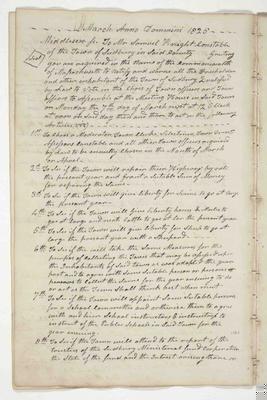 March Anno Domini 1825
Middlesex ss. To Mr Samuel Haight Constable
of the Town of Sudbury in Said County Greeting
Seal
you are required in the Name of the Commonwealth
of Massachusetts to Notify and Warn all the Freeholders
and other inhabitants of the Town of Sudbury Qualified
by Law to Vote in the Choice of Town officers and Town
affairs to Assemble at the Meeting House in Said Town
on Monday the 7th day of March next at 12 Clock
at noon on Said day then and there to act on the following
Articles, viz.
1st To Choose a Moderator Town Clerk Selectmen Town
Assessors Constable and all other Town officers required
by Law to be annually Chosen in the Month of March
or April
2d To See if the Town will repair their Highways by a tax
the present year and grant a Suitable Sum of Money
for repairing the Same
3d To See if the Town will give liberty for Swine to go at large
the present year
4th To See if the Town will give liberty for
go at large and neat Cattle to go at large the present year
5th To See if the Town will give liberty for Sheep to go at
large the present year with a Shepherd
6th To See if the will take the Same Measures for the
purpose of Collecting the Taxes that may be assessed upon
the inhabitants of Said Town as was adopted the year
past and to agree with Some Suitable person or
persons to Collect the Same for the year ensuing to do
or act as the Town Shall think best when met
7th To See if the Town will appoint Some Suitable persons
for a School Committee and authorize them to agree
with and hire School instructors & instructresses to
instruct the Public Schools in Said Town for the
year ensuing
8th To See if the Town will attend to the report of the
trustees of the Sudbury Ministerial fund Corporation
the State of the fund and the interest arising therefrom or